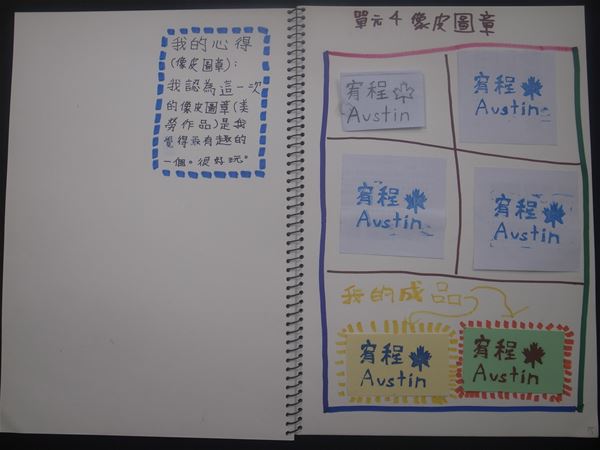 我的心得
(像皮圖章):
我認為這一次
的像皮圖章(美
勞作品)是我
覺得最有趣的
一個。很好玩。
單元4 像皮圖章
宥程
Austin
宥程
Austin
宥程
Austin
宥程
Austin
我的成品
宥程
Austin
宥程
Austin